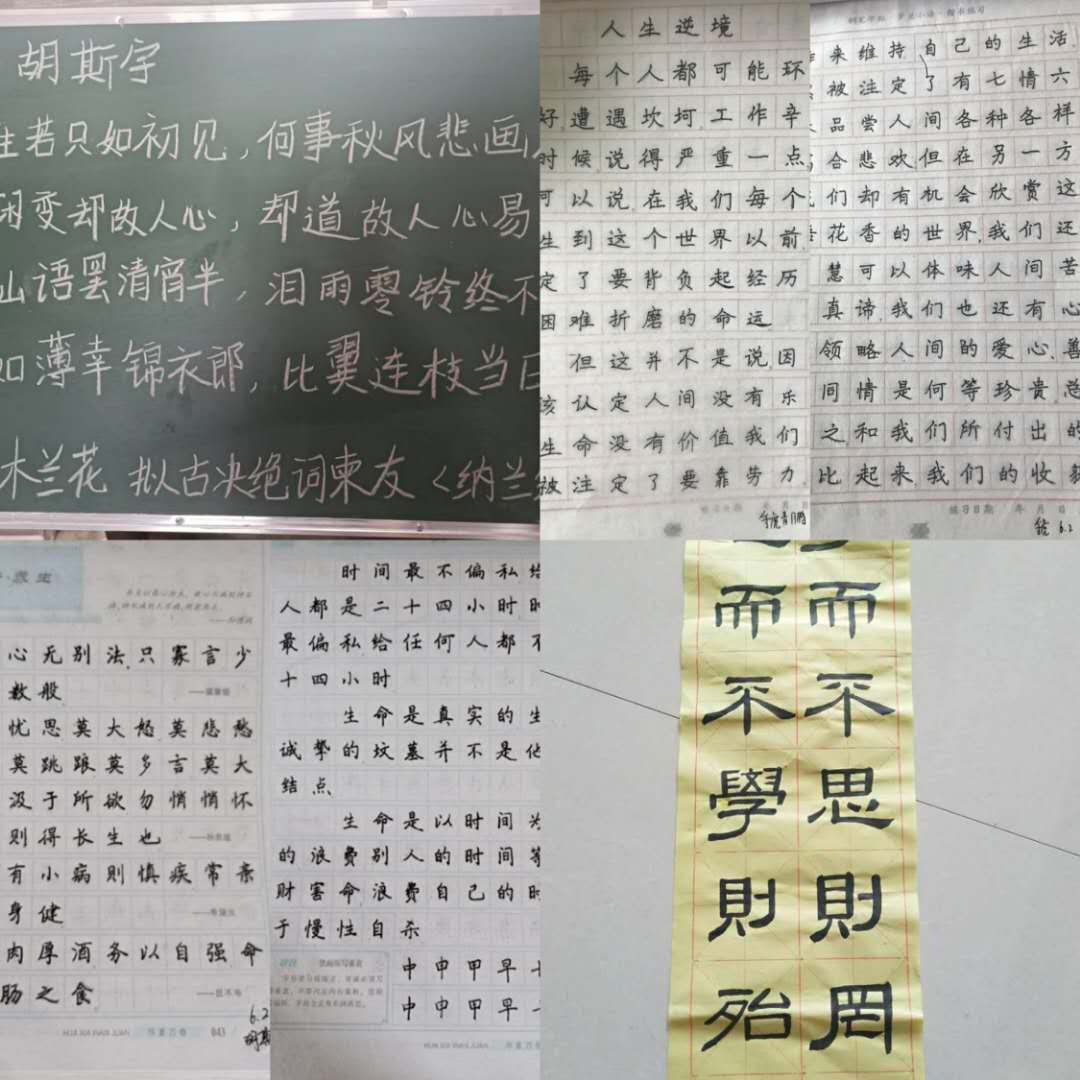 胡斯宇
生若只如初见，何事秋风悲画
闲变却故人心，却道故人心易
山语罢清宵半，泪雨零铃终不
如薄幸锦衣郎，比翼连枝当日
木兰花 拟古决绝词柬友〈纳兰
人生逆境
每个人都可能环
好,遭遇坎坷,工作辛
时候说得严重一点
可以说,在我们每个
生到这个世界以前
定了要背负起经历
困难折磨的命运
但这并不是说,因
该认定人间没有乐
生命没有价值我们
被注定了要靠劳力
来维持自己的生活
被注定了有七情六
品尝人间各种各样
合悲欢但在另一方
们却有机会欣赏这
花香的世界,我们还
慧可以体味人间苦
真谛,我们也还有心
领略人间的爱心,善
同情是何等珍贵总
之,和我们所付出的
比起来,我们的收获
练习日期 年 月 日
6.2
心无别法,只寡言少
数般
忧思莫大怒莫悲愁
莫跳踉莫多言莫大
汲于所欲勿悄悄怀
则得长生也
有小病则慎疾常亲
身健
肉厚酒务以自强命
肠之食
6.2
时间最不偏私给
人都是二十四小时时
最偏私给任何人都不
十四小时
生命是真实的生
诚挚的坟墓并不是他
结点
生命是以时间为
的浪费别人的时间等
财害命,浪费自己的时
于慢性自杀
中申甲早十
中申甲早十
而 而
不 不
學 思
則 則
殆 罔